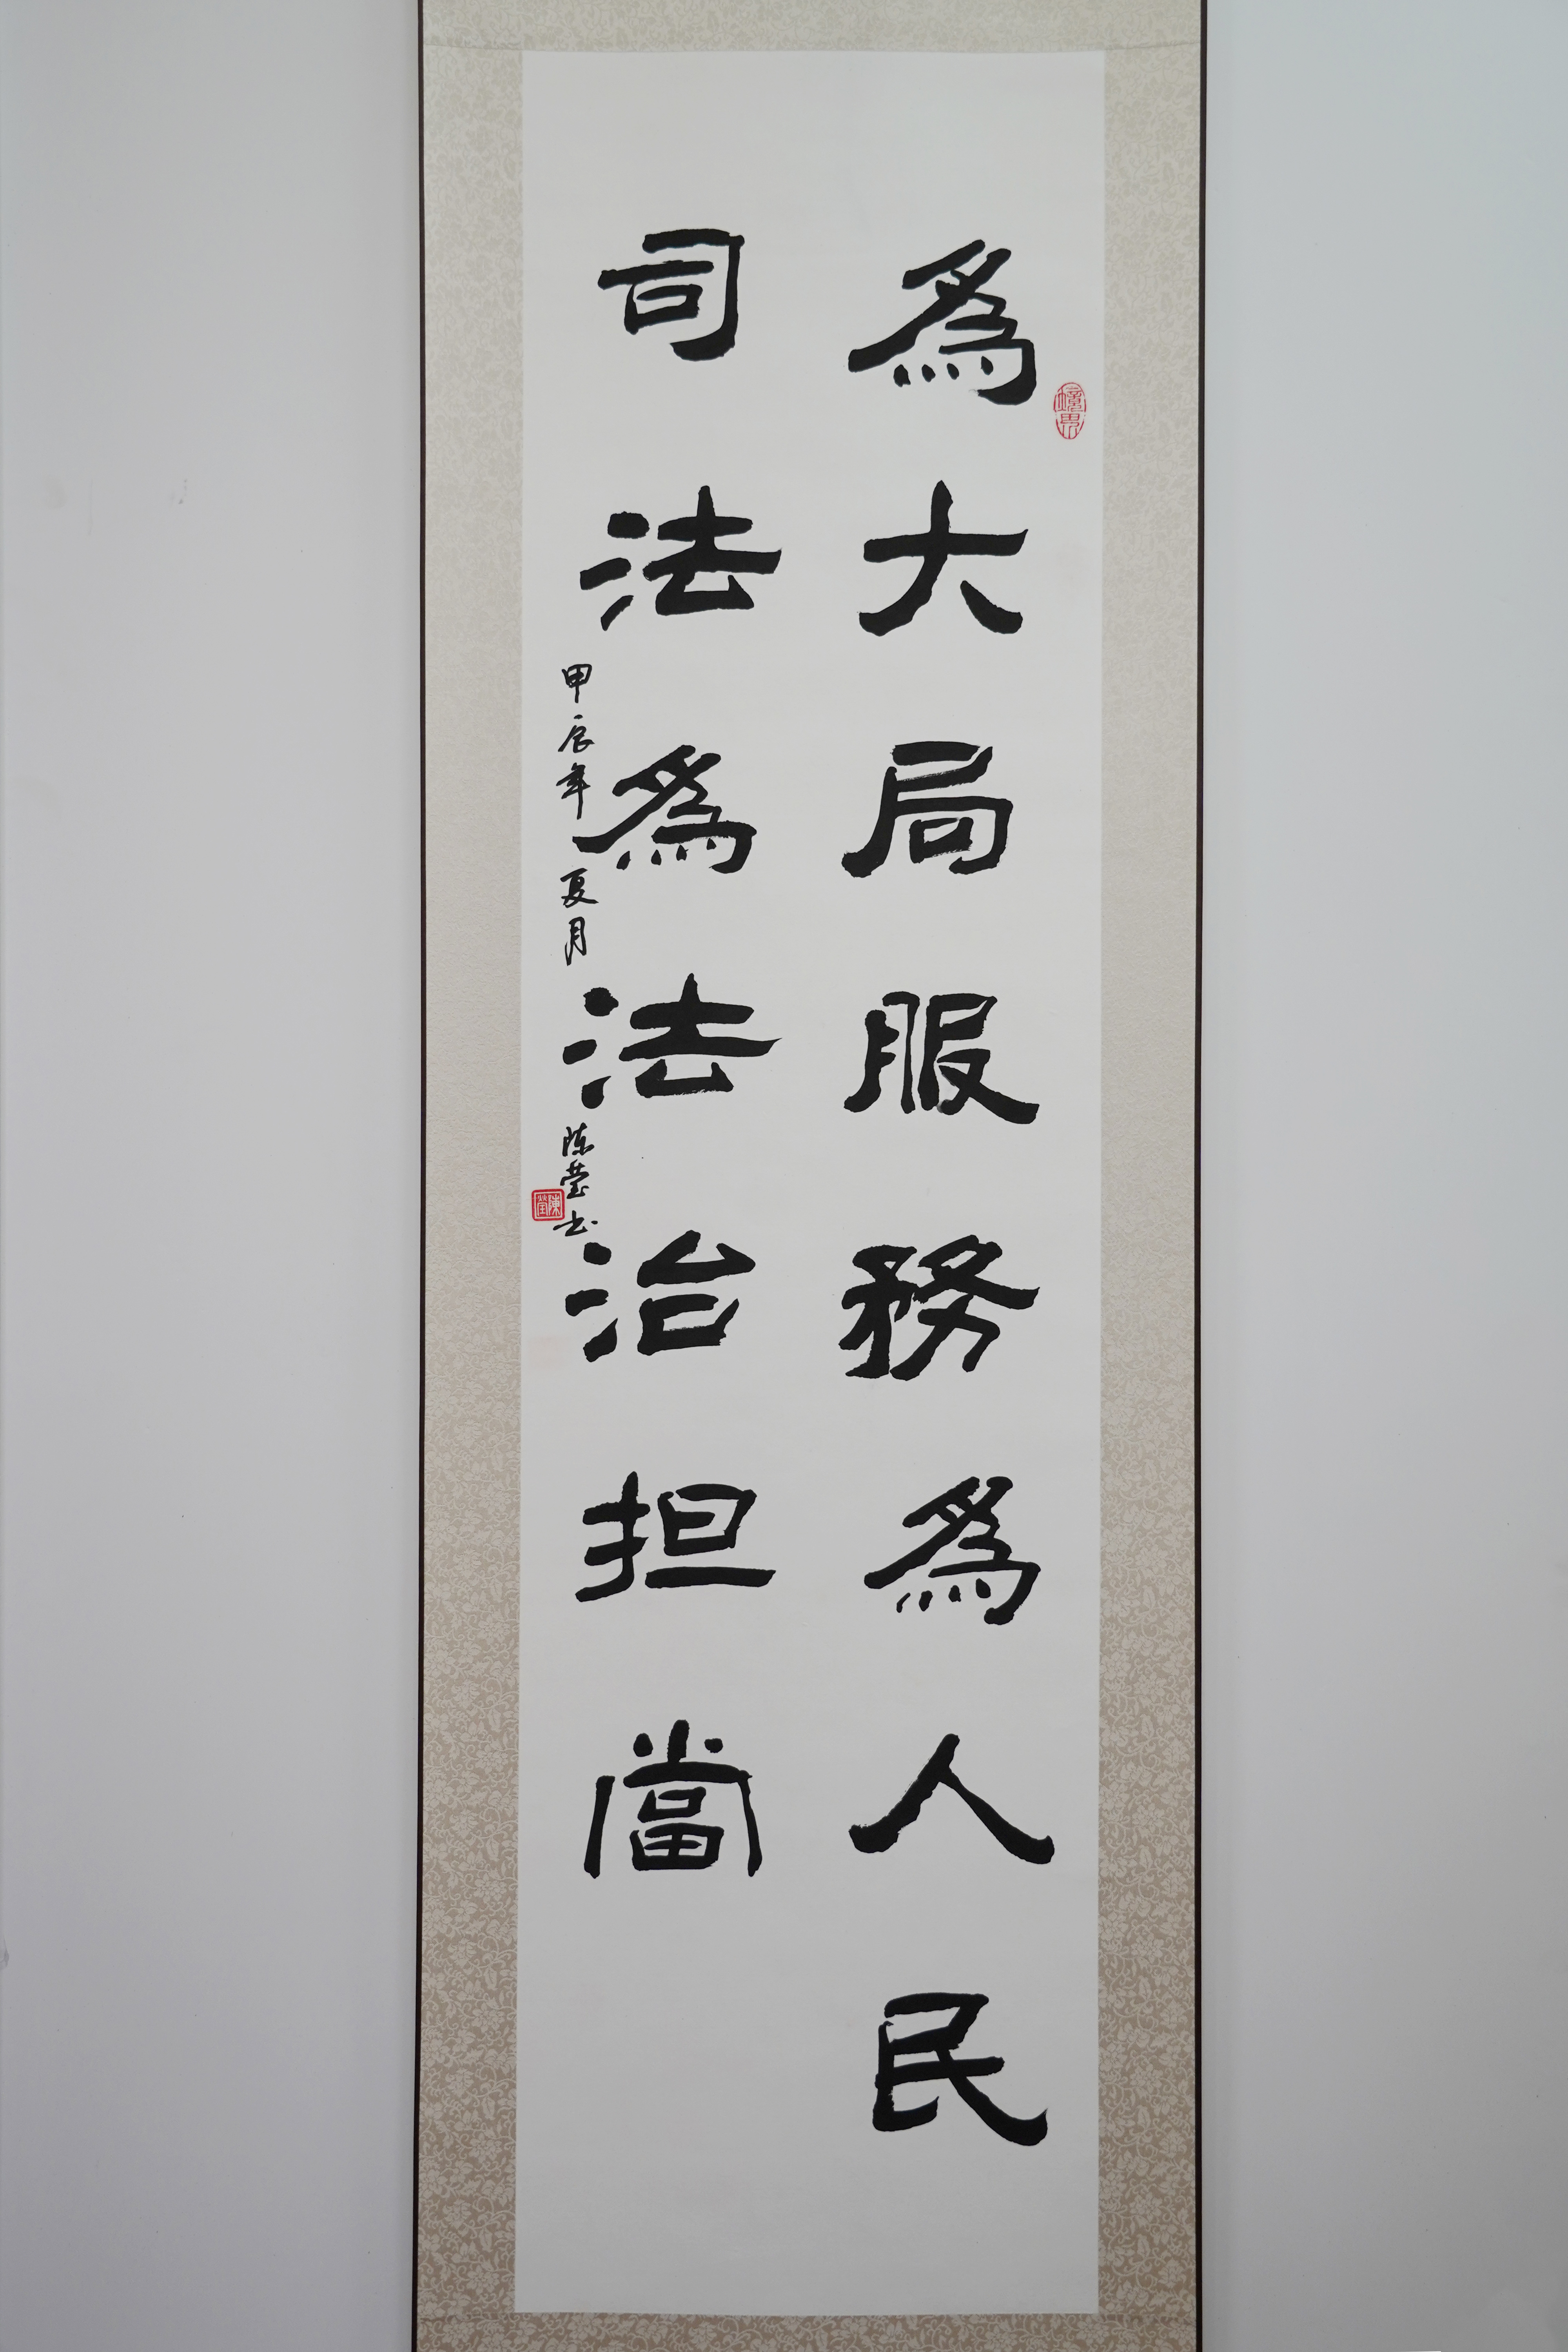 為大局服務為人民
司法為法治担當
甲辰年夏月
陈莹书
陳瑩